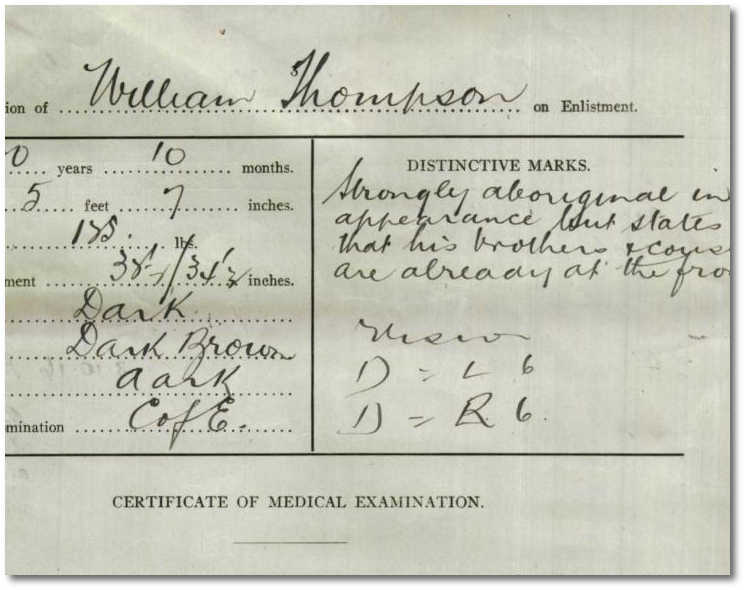 ion of William Thompson on Enlistment.
0 years 10 months.
5 feet 7 inches.
lbs.
ment inches.
Dark
Dark Brown
dark
mination C of E.
DISTINCTIVE MARKS.
Strongly aboriginal in
appearance but states
that his brothers & cous
are already at the fro
Vision
D = L 6
D = R 6.
CERTIFICATE OF MEDICAL EXAMINATION.